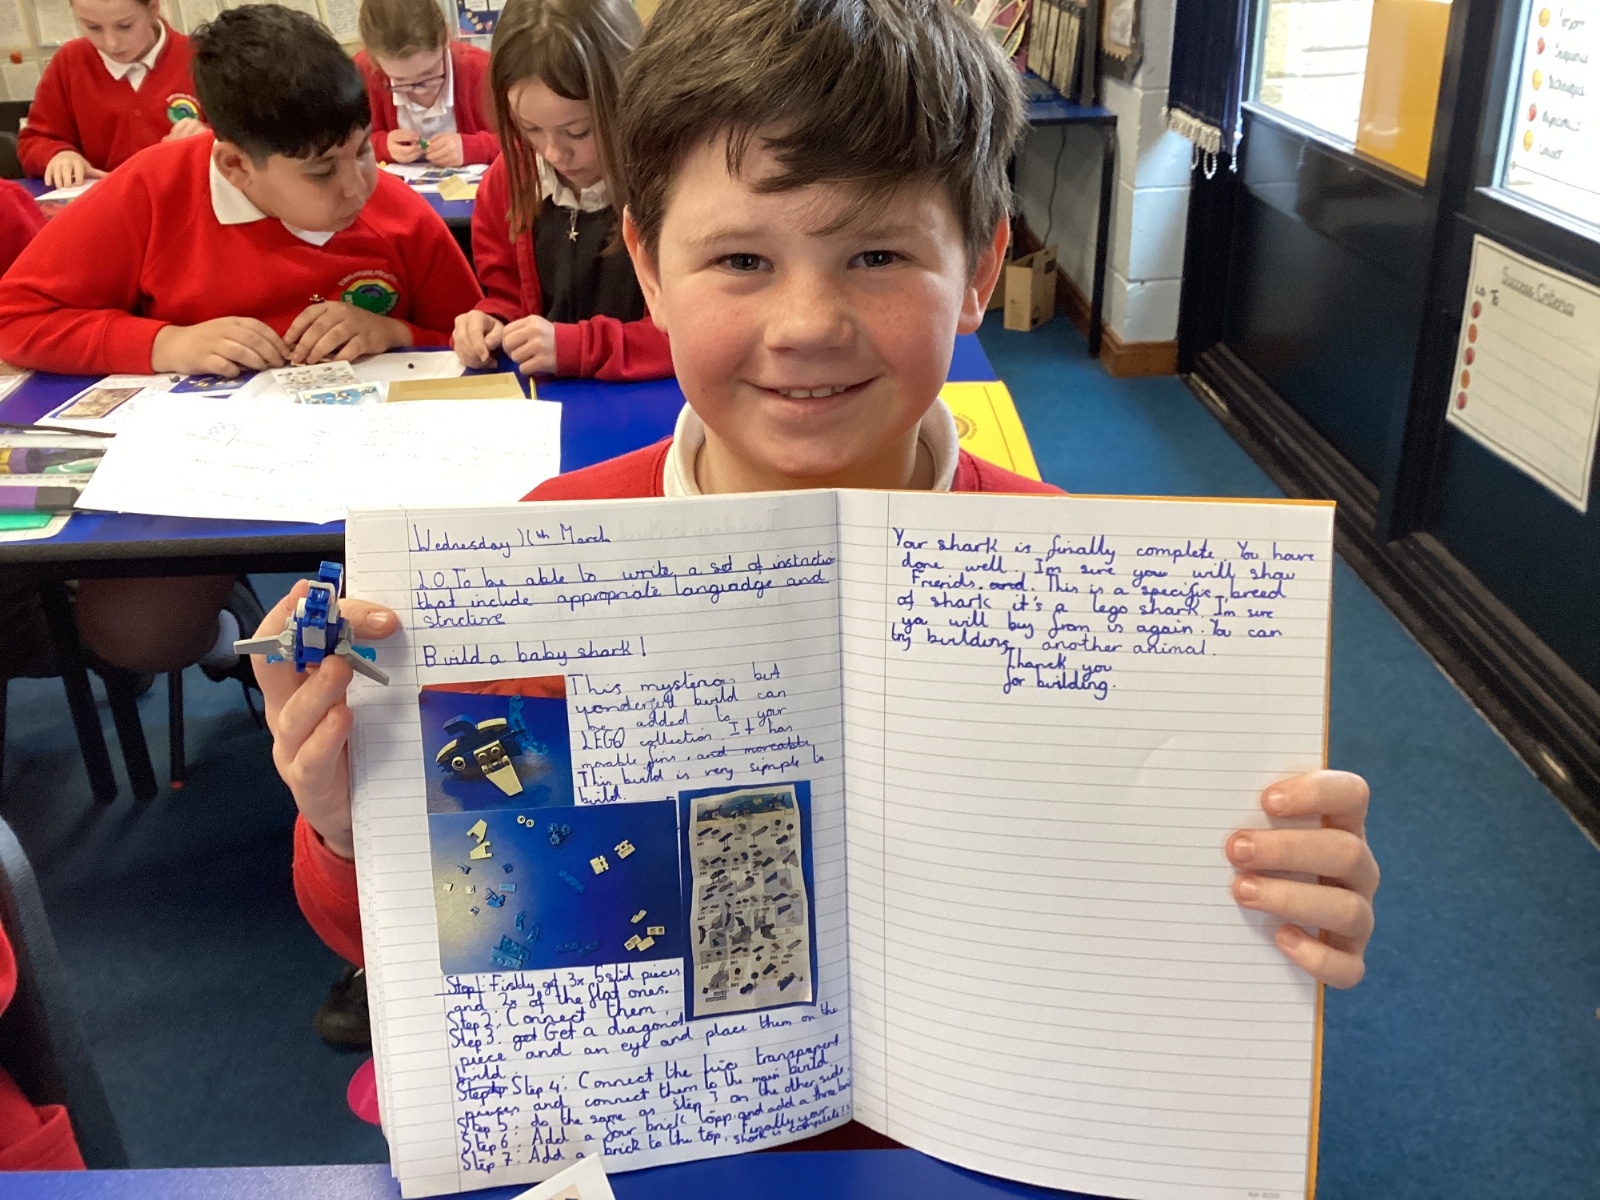 Wednesday 16th March
L.O To be able to write a set of instructions
that include appropriate languadge and
structure
Build a baby shark!
This mysterious but
wonderful build can
be added to your
LEGO collection. It has
movable fins. and moveable
This build is very simple to
build.
Step 1: Firstly get 3x 5 slid pieces
and 2x of the flat ones.
Step 2: Connect them.
Step 3: get Get a diagonal
piece and an eye and place them on the
build.
Step Step 4: Connect the two transparent
pieces and connect them to the main build.
Step 5: do the same as step 3 on the other side.
Step 6: Add a four brick topp. and add a three
Step 7: Add a brick to the top. Finally your
shark is complete!!
Your shark is finally complete. You have
done well. I'm sure you will show
Friends. and. This is a specific breed
of shark it's a lego shark. I'm sure
you will buy from is again. You can
try building another animal.
Thanck you
for building.
Success Criteria
LO To